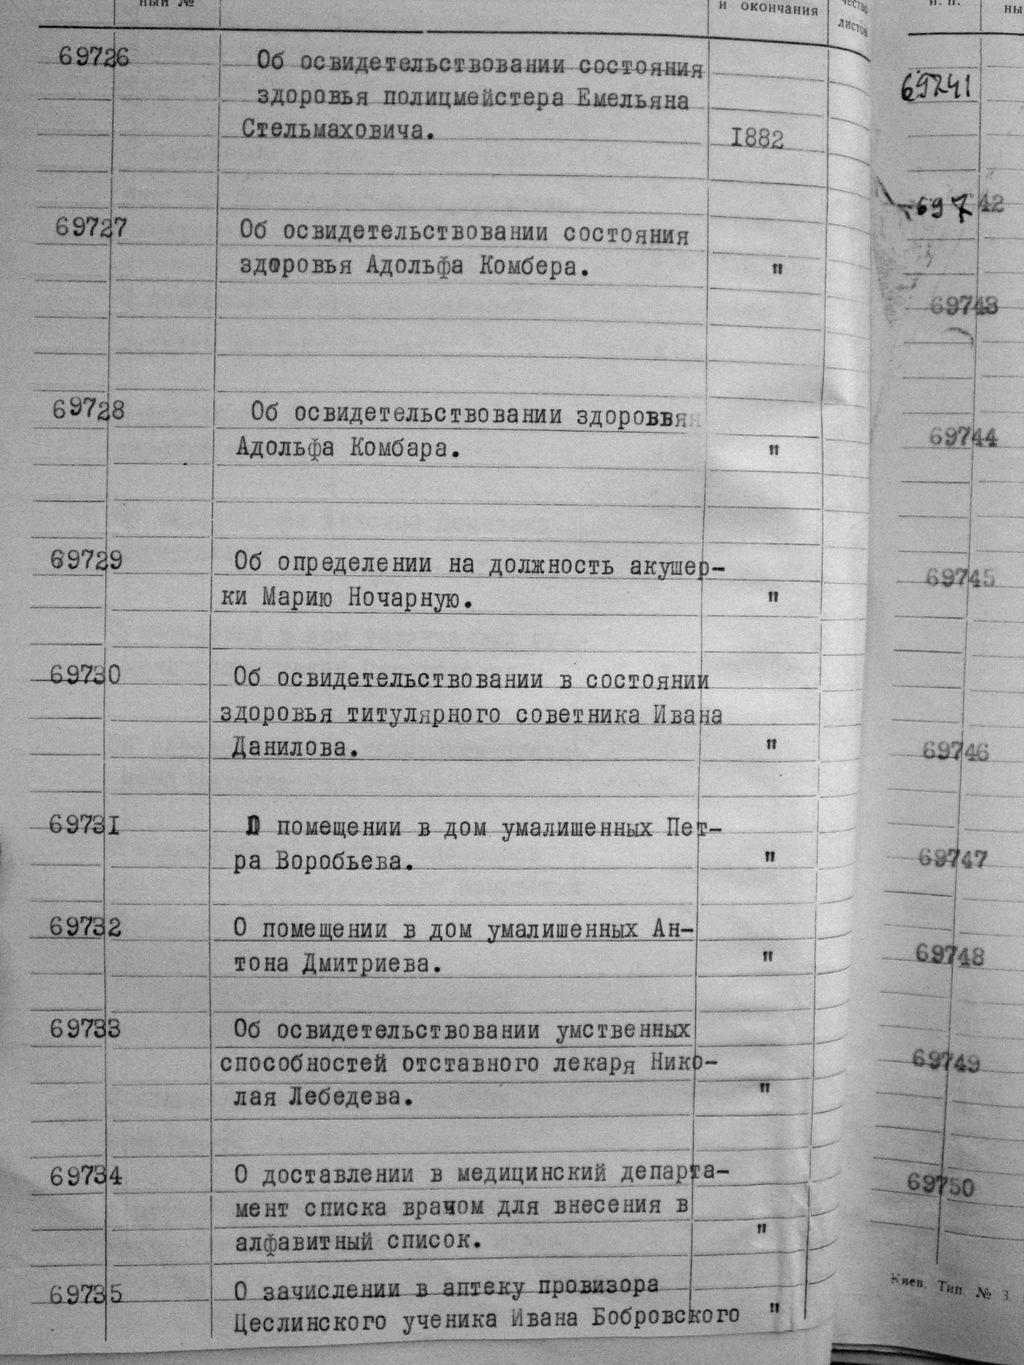 ный №
и окончания
чество
листов
69726 Об освидетельствовании состояния
здоровья полицмейстера Емельяна
Стельмаховича. 1882
69727 Об освидетельствовании состояния
здоровья Адольфа Комбера. "
69728 Об освидетельствовании здоровья
Адольфа Комбара. "
69729 Об определении на должность акушер-
ки Марию Ночарную. "
69730 Об освидетельствовании в состоянии
здоровья титулярного советника Ивана
Данилова. "
69731 О помещении в дом умалишенных Пет-
ра Воробьева. "
69732 О помещении в дом умалишенных Ан-
тона Дмитриева. "
69733 Об освидетельствовании умственных
способностей отставного лекаря Нико-
лая Лебедева. "
69734 О доставлении в медицинский департа-
мент списка врачом для внесения в
алфавитный список. "
69735 О зачислении в аптеку провизора
Цеслинского ученика Ивана Бобровского "
п. п.
ны
69741
69742
69743
69744
69745
69746
69747
69748
69749
69750
Киев. Тип. № 3